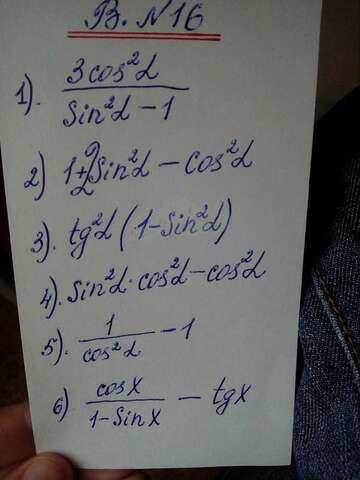 В. №16
1). 3cos²α / sin²α – 1
2) 1+2sin²α – cos²α
3). tg²α (1 – sin²α)
4). sin²α · cos²α – cos²α
5). 1 / cos²α – 1
6) cosx / 1 – sinx – tgx